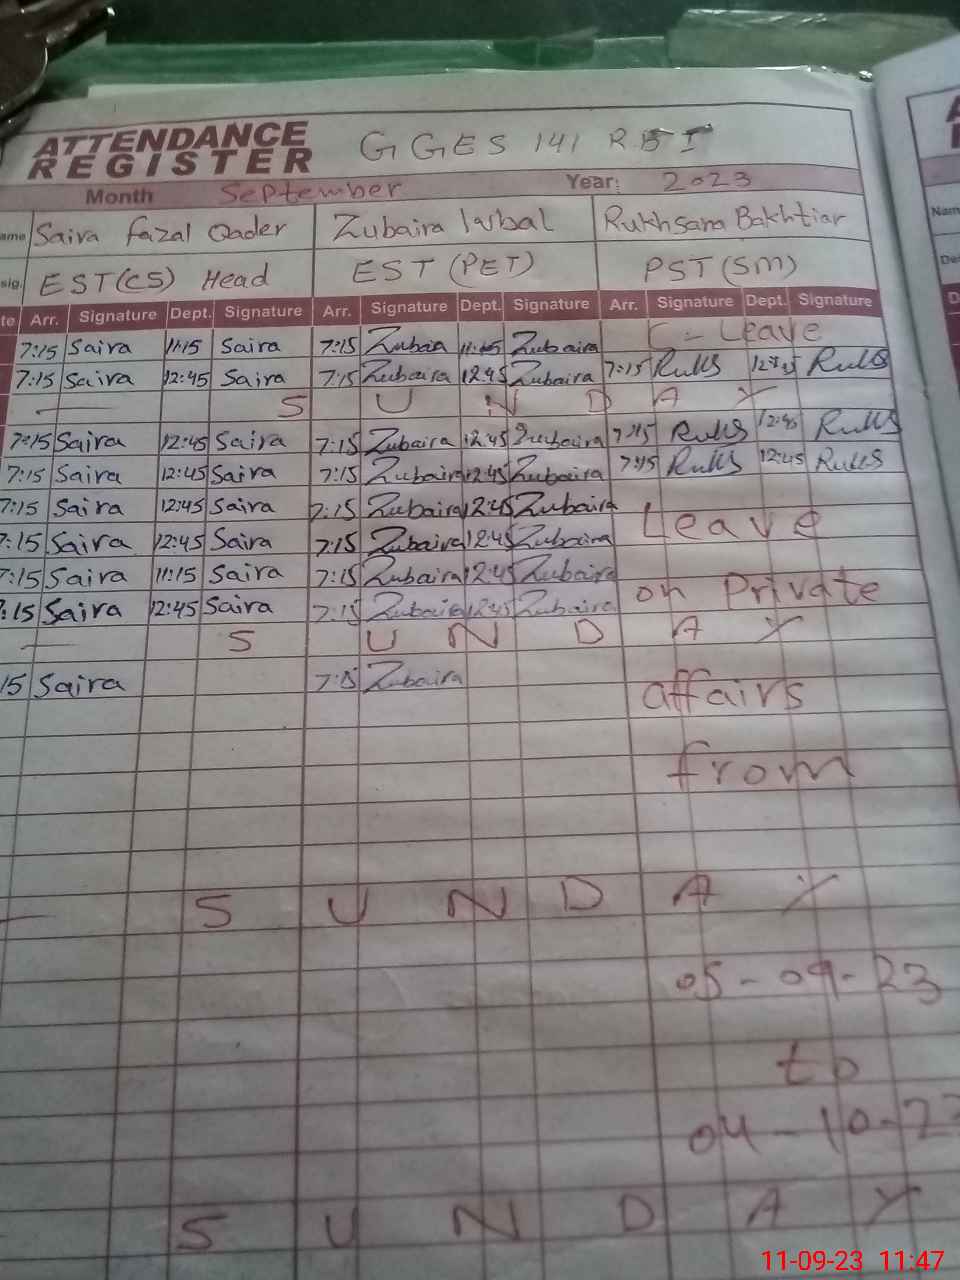 ATTENDANCE REGISTER GGES 141 R.B I
Month September Year: 2023
ame Saira fazal Qader Zubaira Iqbal Rukhsana Bakhtiar
sig. EST(CS) Head EST (PET) PST (SM)
te Arr. Signature Dept. Signature Arr. Signature Dept. Signature Arr. Signature Dept. Signature
7:15 Saira 11:15 Saira 7:15 Zubaia 11:15 Zubaira C-Leave
7:15 Saira 12:45 Saira 7:15 Zubaira 12:45 Zubaira 7:15 Ruks 12:45 Ruks
S U N D A Y
7:15 Saira 12:45 Saira 7:15 Zubaira 12:45 Zubaira 7:15 Ruks 12:45 Ruks
7:15 Saira 12:45 Saira 7:15 Zubaira 12:45 Zubaira 7:15 Ruks 12:45 Ruks
7:15 Saira 12:45 Saira 7:15 Zubaira 12:45 Zubaira Leave
7:15 Saira 12:45 Saira 7:15 Zubaira 12:45 Zubaira
7:15 Saira 11:15 Saira 7:15 Zubaira 12:45 Zubaira on Private
7:15 Saira 12:45 Saira 7:15 Zubaira 12:45 Zubaira
S U N D A Y
15 Saira 7:15 Zubaira affairs
from
S U N D A Y
05-09-23
to
04-10-23
S U N D A Y
Nam
De
D
11-09-23 11:47